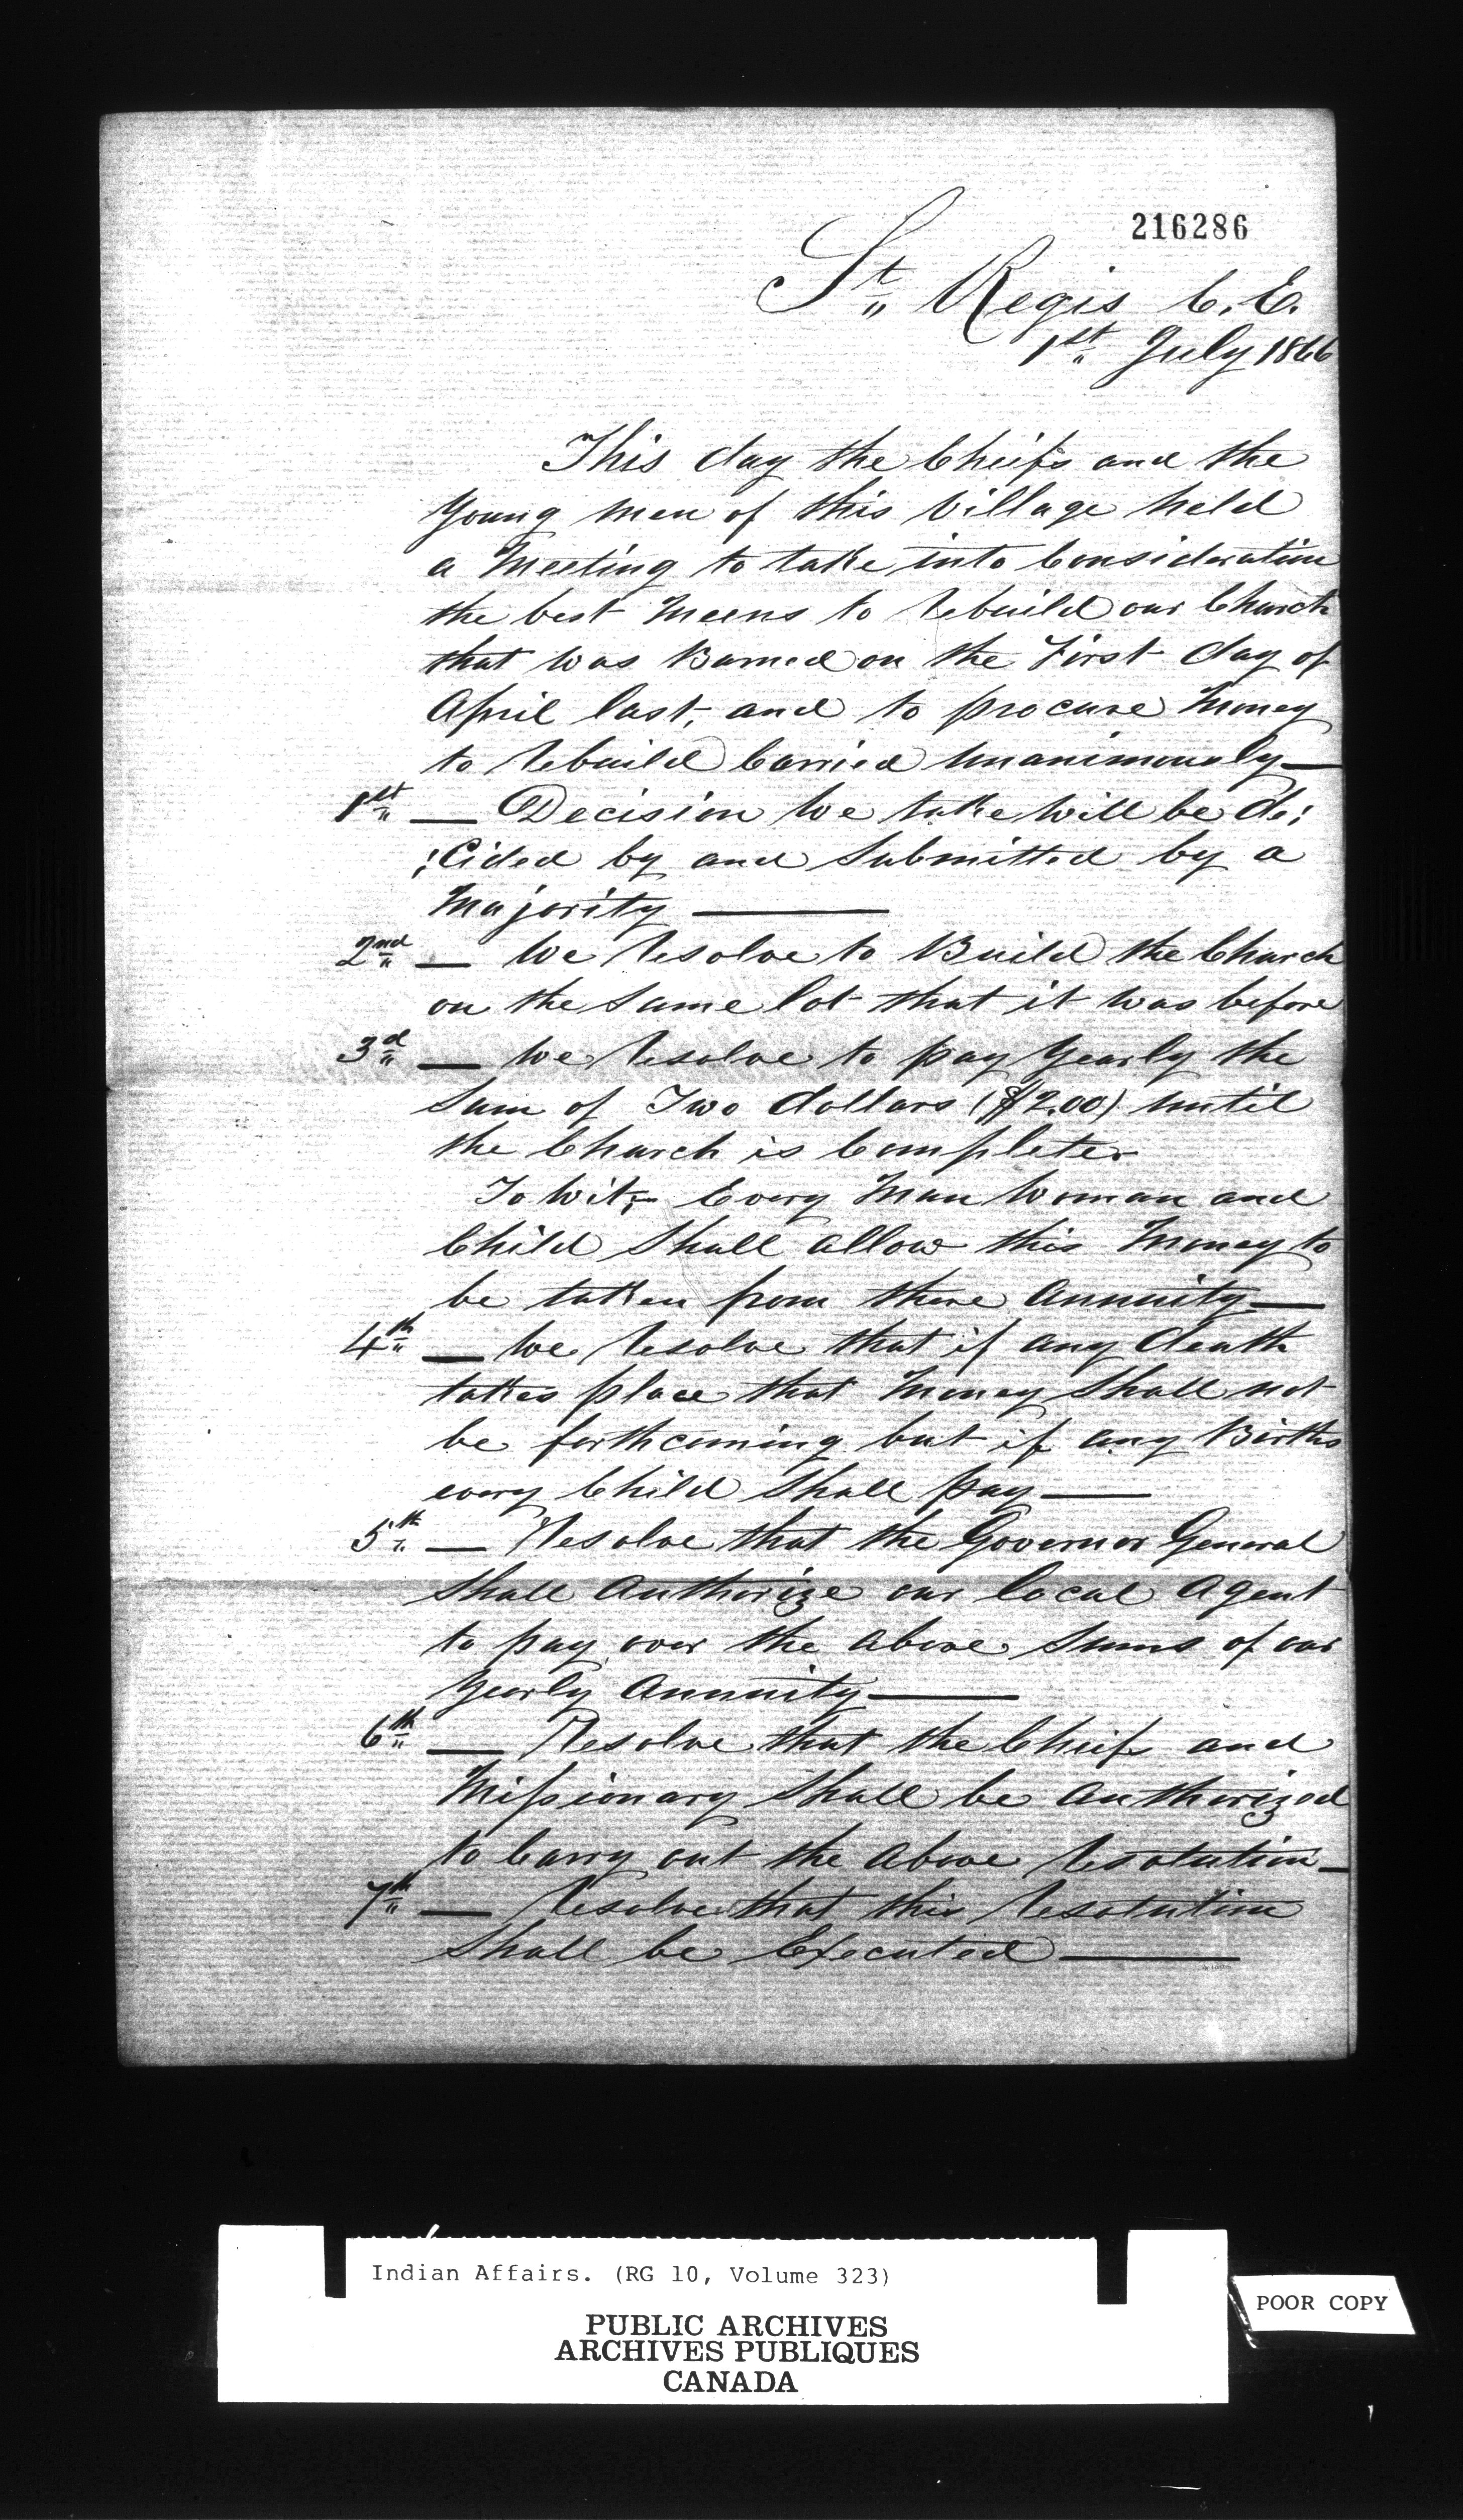 216286
St Regis C. E.
1st July 1866
This day the Chiefs and the
Young men of this Village held
a Meeting to take into Consideration
the best Meens to Rebuild our Church
that was Burned on the First day of
April last, and to procure Money
to Rebuild Carried Unanimously —
1st — Decision We take Will be de:
:Cided by and Submitted by a
Majority —
2nd — We Resolve to Build the Church
on the Same lot that it was before
3d — We Resolve to pay Yearly the
Sum of Two dollars ($2.00) until
the Church is Complete
To Wit; Every Man Woman and
Child Shall allow this Money to
be taken from there Annuity —
4th — We Resolve that if any death
takes place that Money Shall not
be forthcoming but if any Births
every Child Shall pay —
5th — Resolve that the Governor General
Shall Authorize our local Agent
to pay over the above Sums of our
Yearly Annuity —
6th — Resolve that the Chiefs and
Missionary Shall be Authorized
to Carry out the above Resolution —
7th — Resolve that this Resolution
Shall be Executed —
Indian Affairs. (RG 10, Volume 323)
PUBLIC ARCHIVES
ARCHIVES PUBLIQUES
CANADA
POOR COPY